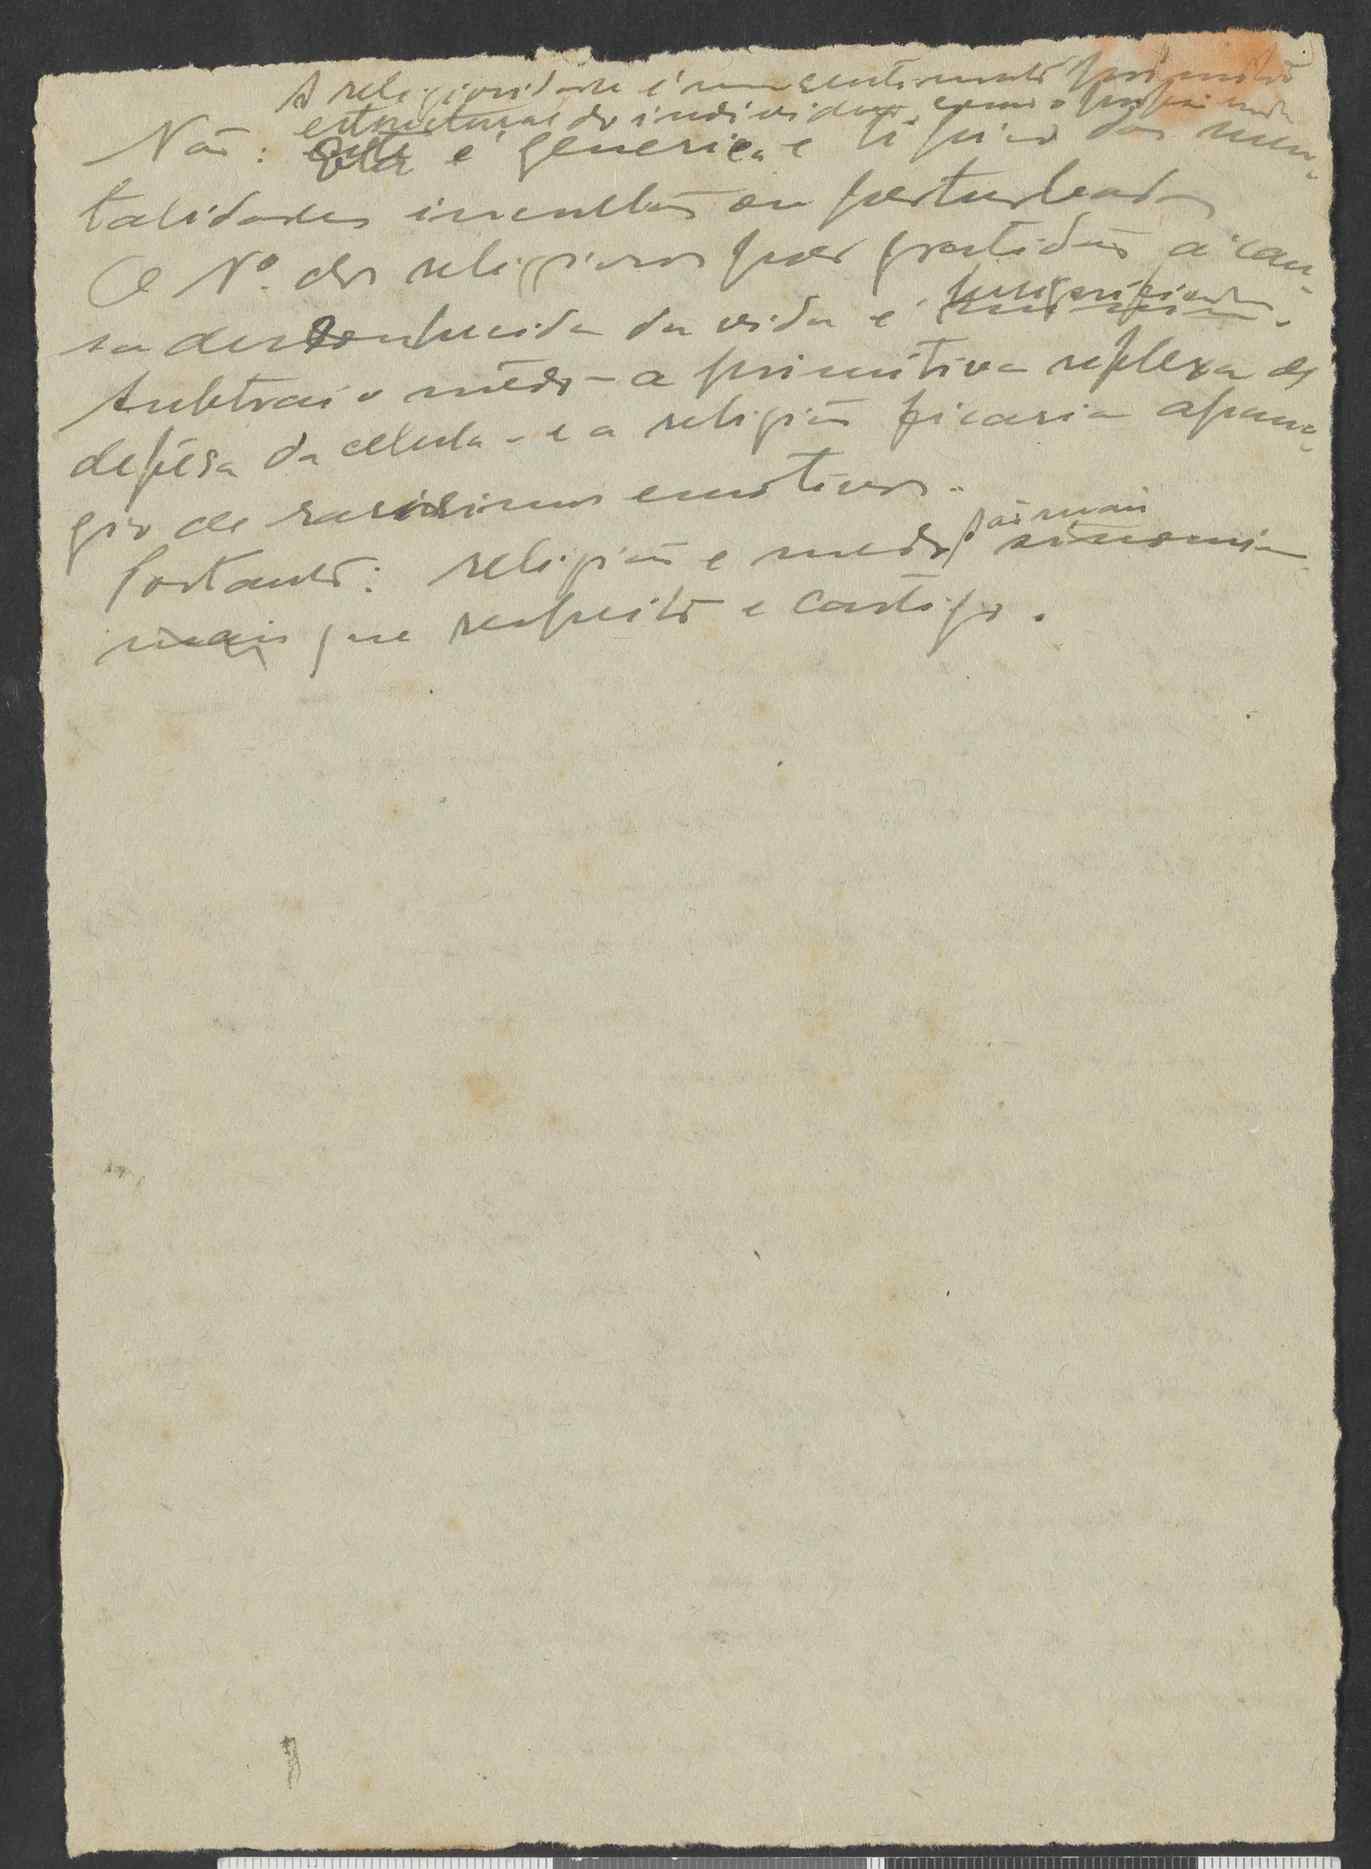 A religiosidade é um sentimento primitivo
estructural do individuo, como o proprio medo
Não: ella é generica e tipica das men-
talidades incultas ou perturbadas
O Nº dos religiosos por gratidão á cau-
sa desconhecida da vida é insignificante.
Subtrai o mêdo - a primitiva reflexa de
defêsa da celula - e a religião ficaria apana-
gio de rarissimos emotivos.
Portanto: religião e medo são mais sinonimos
mais que respeito e castigo.